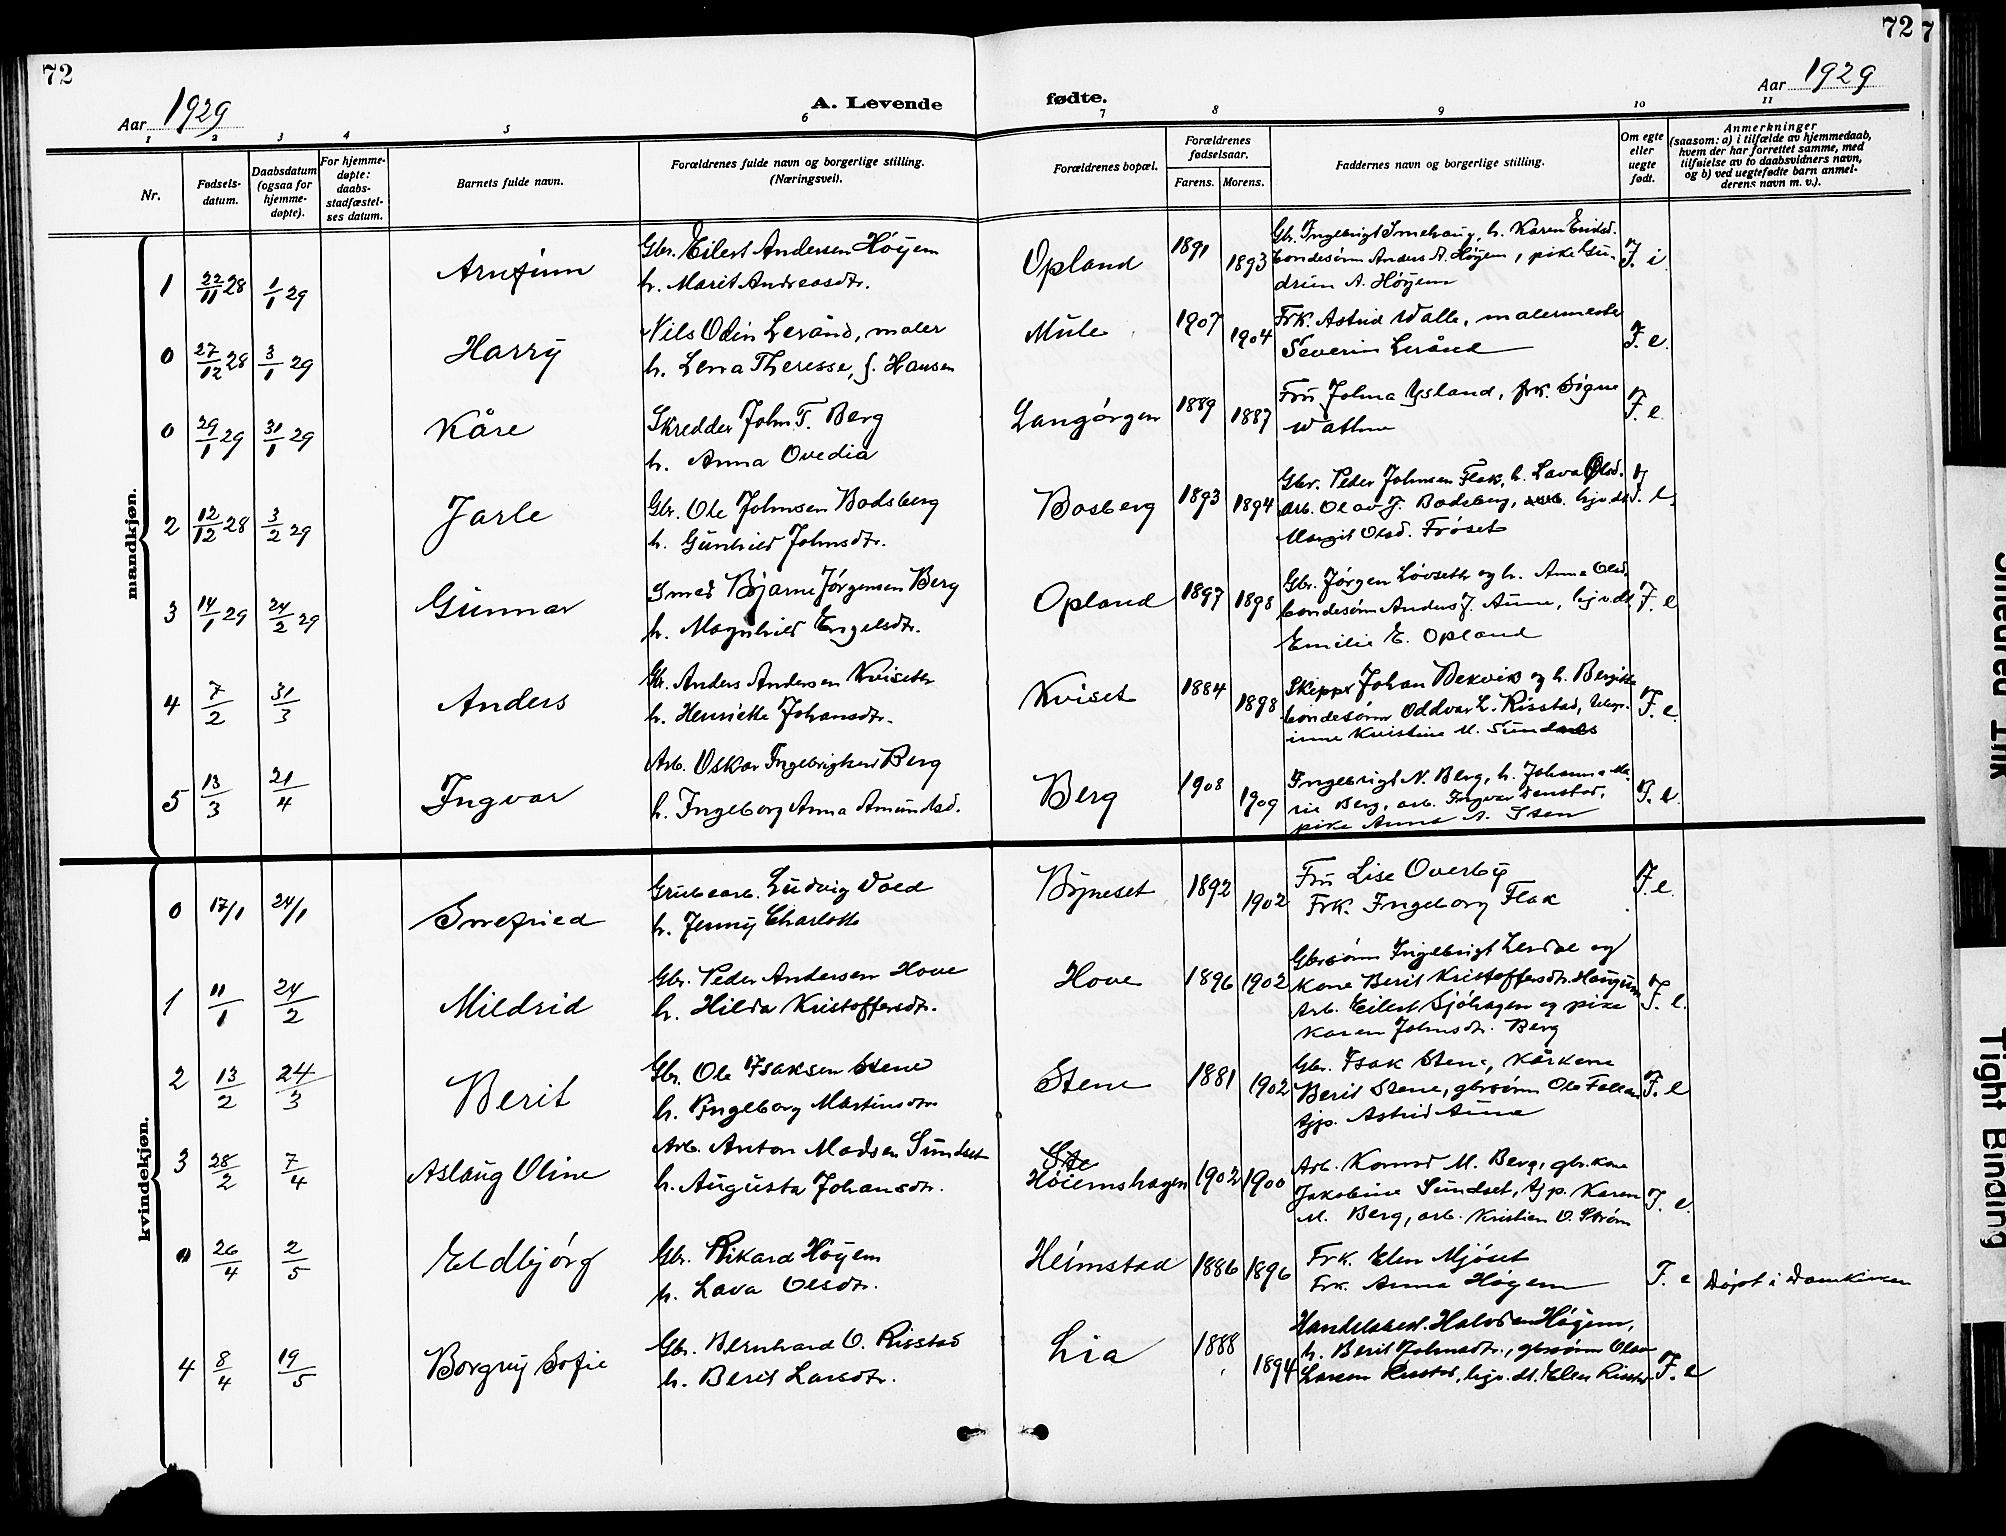 72
Aar 1929
A. Levende fødte.
Aar 1929
72
7
1 2 3 4 5 6 7 8 9 10 11
Nr.
Fødsels-
datum.
Daabsdatum
(ogsaa for
hjemme-
døpte).
For hjemme-
døpte:
daabs-
stadfæstel-
ses datum.
Barnets fulde navn.
Forældrenes fulde navn og borgerlige stilling.
(Næringsvei).
Forældrenes bopæl.
Forældrenes
fødselsaar.
Farens. Morens.
Faddernes navn og borgerlige stilling.
Om egte
eller
uegte
født.
Anmerkninger
(saasom: a) i tilfælde av hjemmedaab,
hvem der har forrettet samme, med
tilføielse av to daabsvidners navn,
og b) ved uegtefødte barn anmel-
derens navn m. v.).
mandkjøn.
1 22/11 28 1/1 29 Arnfinn
Gbr. Eilert Andersen Höyem
h. Marit Andreasdtr.
Opland 1891 1893
Gbr. Ingebrigt h. Karen
bondesönn Anders A. Höyem, pike Gu-
drun A. Höyem
F. i
0 27/12 28 3/1 29 Harry
Nils Odin Lerånd, maler
h. Lena Theresse, f. Hansen
Mule 1907 1904
Frk. Astrid Walle, malermester
Severin Lerånd
F. e.
0 29/1 29 31/1 29 Kåre
Skredder John T. Berg
h. Anna Ovedia
Langörgen 1889 1887
Fru Jolma Ysland, frk. Signe
Wathne
F. e.
2 12/12 28 3/2 29 Jarle
Gbr. Ole Johnsen Bodsberg
h. Gunhild Johnsdtr.
Bosberg 1893 1894
Gbr. Peder Johnsen Flak, h. Lava Olsd.
arb. Olav J. Bodsberg, hjv. dt.
Margit Olsd. Fröset
F. e.
3 14/1 29 24/2 29 Gunnar
Smed Bjarne Jörgensen Berg
h. Magnhild Engelsdtr.
Opland 1897 1898
Gbr. Jörgen Lövseth og h. Anna Olsd.
bondesönn Anders J. Aune, hjv. dt.
Emilie E. Opland
F. e
4 7/2 31/3 Anders
Gbr. Anders Andersen Kviseth
h. Henriette Johansdtr.
Kviset 1884 1898
Skipper Johan Bekvik og h. Bergitte
bondesönn Oddvar L. Risstad,
Kristine M. Sundnes
F. e.
5 13/3 21/4 Ingvar
Arb. Oskar Ingebrigtsen Berg
h. Ingeborg Anna Amundsd.
Berg 1908 1909
Ingebrigt N. Berg, h. Johanna Ma-
rie Berg, arb. Ingvar Venstad,
pike Anna A. Isen
F. e.
kvindekjøn.
0 17/1 24/1
Grubearb. Ludvig Vold
h. Jenny Charlotte
Byneset 1892 1902
Fru Lise Overby
Frk. Ingeborg Flak
F. e.
1 11/1 24/2 Mildrid
Gbr. Peder Andersen Hove
h. Hilda Kristoffersdtr.
Hove 1896 1902
Gbrsönn Ingebrigt og
kone Berit Kristoffersdtr. Haugum
Arb. Eilert Sjöhagen og pike
Karen Johnsdtr. Berg
F. e.
2 13/2 24/3 Berit
Gbr. Ole Isaksen Stene
h. Ingeborg Martinsdtr.
Stene 1881 1902
Gbr. Isak Stene, kårkone
Berit Stene, gbrsönn Ole
tjp. Astrid Aune
F. e
3 28/2 7/4 Aslaug Oline
Arb. Anton Madsen Sundset
h. Augusta Johansdtr.
Ste
Höiemshagen 1902 1900
Arb. Konrad M. Berg, gbr. kone
Jakobine Sundset, tjp. Karen
M. Berg, arb. Kristian O. Ström
F. e.
0 26/4 2/5 Eldbjörg
Gbr. Rikard Höyem
h. Lava Olsdtr.
Heimstad 1886 1896
Frk. Elen Mjöset
Frk. Anna Höyem
F. e Döpt i Domkirken
4 8/4 19/5 Borgny Sofie
Gbr. Bernhard O. Risstad
h. Berit Larsdtr.
Lia 1888 1894
Handelsbest. Halvdan Höyem,
h. Berit Johnsdtr., gbrsönn Olav
Larsen Risstad, hjv. dt. Elen Risstad
F. e
Tight Binding